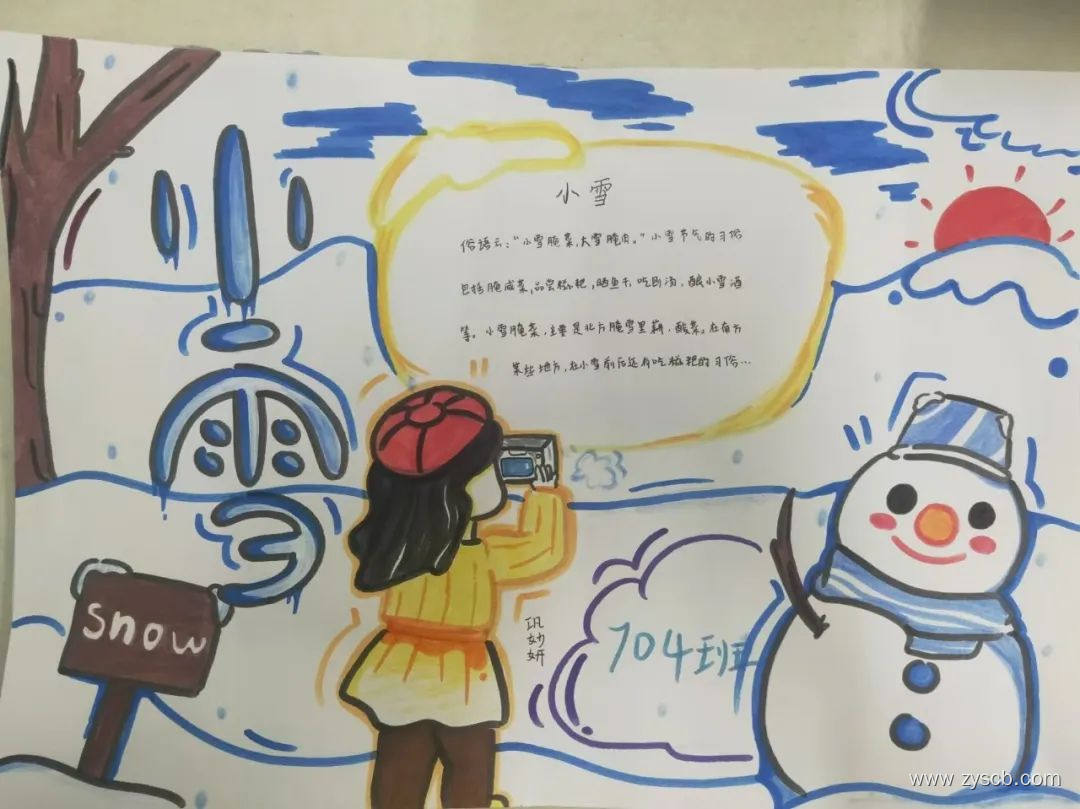 小雪
小雪
俗语云:“小雪腌菜,大雪腌肉。”小雪节气的习俗
包括腌咸菜,品尝糍粑,晒鱼干,吃刨汤,酿小雪酒
等。小雪腌菜,主要是北方腌雪里蕻、酸菜。在南方
某些地方,在小雪前后还有吃糍粑的习俗…
snow
妙妍
704班
www.zyscb.com